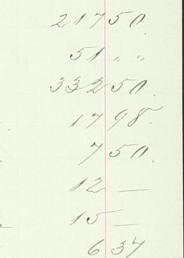 217 50.
51 " "
332 50.
17 98.
7 50.
12 —
15 —
6 37